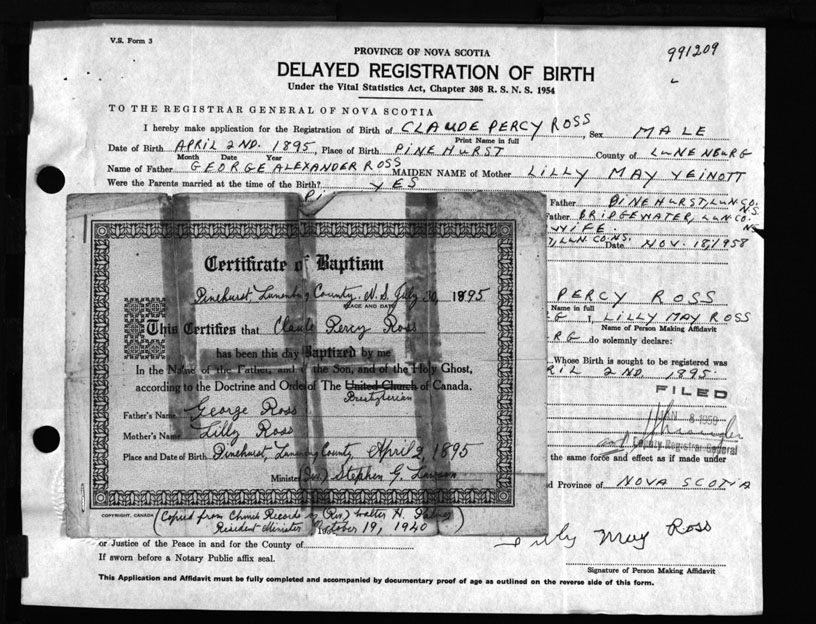 V.S. Form 3
991209
PROVINCE OF NOVA SCOTIA
DELAYED REGISTRATION OF BIRTH
Under the Vital Statistics Act, Chapter 308 R. S. N. S. 1954
TO THE REGISTRAR GENERAL OF NOVA SCOTIA
I hereby make application for the Registration of Birth of CLAUDE PERCY ROSS, Sex MALE
Print Name in full
Date of Birth APRIL 2ND. 1895, Place of Birth PINEHURST County of LUNENBURG
Month Date Year
Name of Father GEORGE ALEXANDER ROSS MAIDEN NAME of Mother LILLY MAY VEINOTT
Were the Parents married at the time of the Birth? YES
Father PINEHURST, LUN. CO. N.S.
Father BRIDGEWATER, LUN. CO. NS
WIFE.
LUN. CO. NS. Date NOV. 18, 1958
PERCY ROSS
Name in full
I, LILLY MAY ROSS
Name of Person Making Affidavit
RG do solemnly declare:
Whose Birth is sought to be registered was
RIL 2ND. 1895.
FILED
JAN 8 1959
Deputy Registrar General
the same force and effect as if made under
d Province of NOVA SCOTIA
Certificate of Baptism
Pinehurst, Lunenburg County, N.S. July 30, 1895
PLACE AND DATE
This Certifies that Claude Percy Ross
has been this day Baptized by me
In the Name of the Father, and of the Son, and of the Holy Ghost,
according to the Doctrine and Order of The United Church of Canada.
Presbyterian
Father's Name George Ross
Mother's Name Lilly Ross
Place and Date of Birth Pinehurst Lunenburg County, April 2, 1895
Minister (Rev.) Stephen G.
COPYRIGHT, CANADA
(Copied from Church Records by (Rev) Walter H.
Resident Minister October 19, 1940)
or Justice of the Peace in and for the County of
If sworn before a Notary Public affix seal.
Lilly May Ross
Signature of Person Making Affidavit
This Application and Affidavit must be fully completed and accompanied by documentary proof of age as outlined on the reverse side of this form.